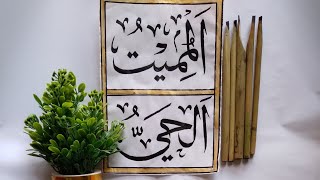 اَلمُمِيتُ
اَلحَيُّ